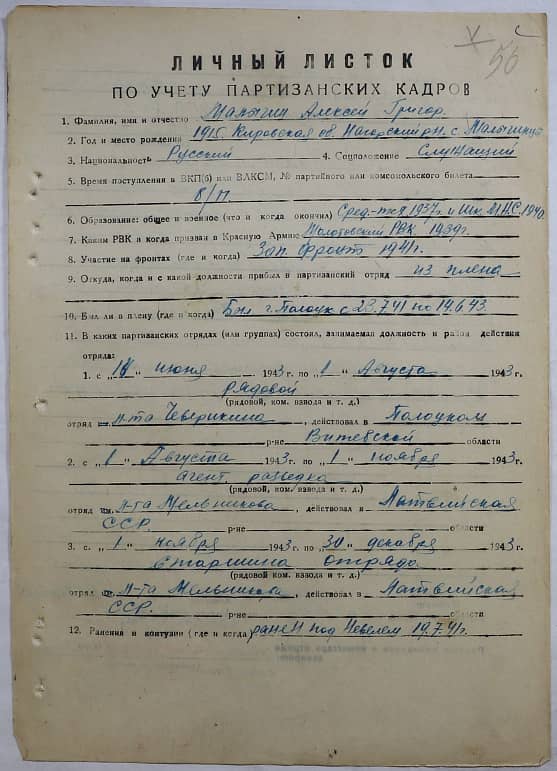 V
56
ЛИЧНЫЙ ЛИСТОК
ПО УЧЕТУ ПАРТИЗАНСКИХ КАДРОВ
1. Фамилия, имя и отчество Малыгин Алексей Григор.
2. Год и место рождения 1915 Кировская об. Нагорский р-н с.
3. Национальность Русский 4. Соцположение Служащий
5. Время поступления в ВКП(б) или ВЛКСМ, № партийного или комсомольского билета
б/п
6. Образование: общее и военное (что и когда окончил) Сред.- 1937г. и 1940
7. Каким РВК и когда призван в Красную Армию Молотовский РВК 1939г.
8. Участие на фронтах (где и когда) Зап. Фронт 1941г.
9. Откуда, когда и с какой должности прибыл в партизанский отряд из плена
10. Был ли в плену (где и когда) Был г. Полоцк с 23.7.41 по 14.6.43.
11. В каких партизанских отрядах (или группах) состоял, занимаемая должность и район действия
отряда:
1. с „ “ июня 1943 г. по „1“ Августа 1943 г.
рядовой
(рядовой, ком. взвода и т. д.)
отряд л-та Чеверикина, действовал в Полоцком
р-не Витебской области
2. с „1“ Августа 1943 г. по „1“ ноября 1943 г.
агент. разведка
(рядовой, ком. взвода и т. д.)
отряд им. л-та Мельникова, действовал в Латвийская
ССР. р-не области
3. с „1“ ноября 1943 г. по „30“ декабря 1943 г.
Старшина отряда
(рядовой, ком. взвода и т. д.)
отряд л-та Мельникова, действовал в Латвийская
ССР р-не области
12. Ранения и контузии (где и когда) ранен под Невелем 19.7.41г.